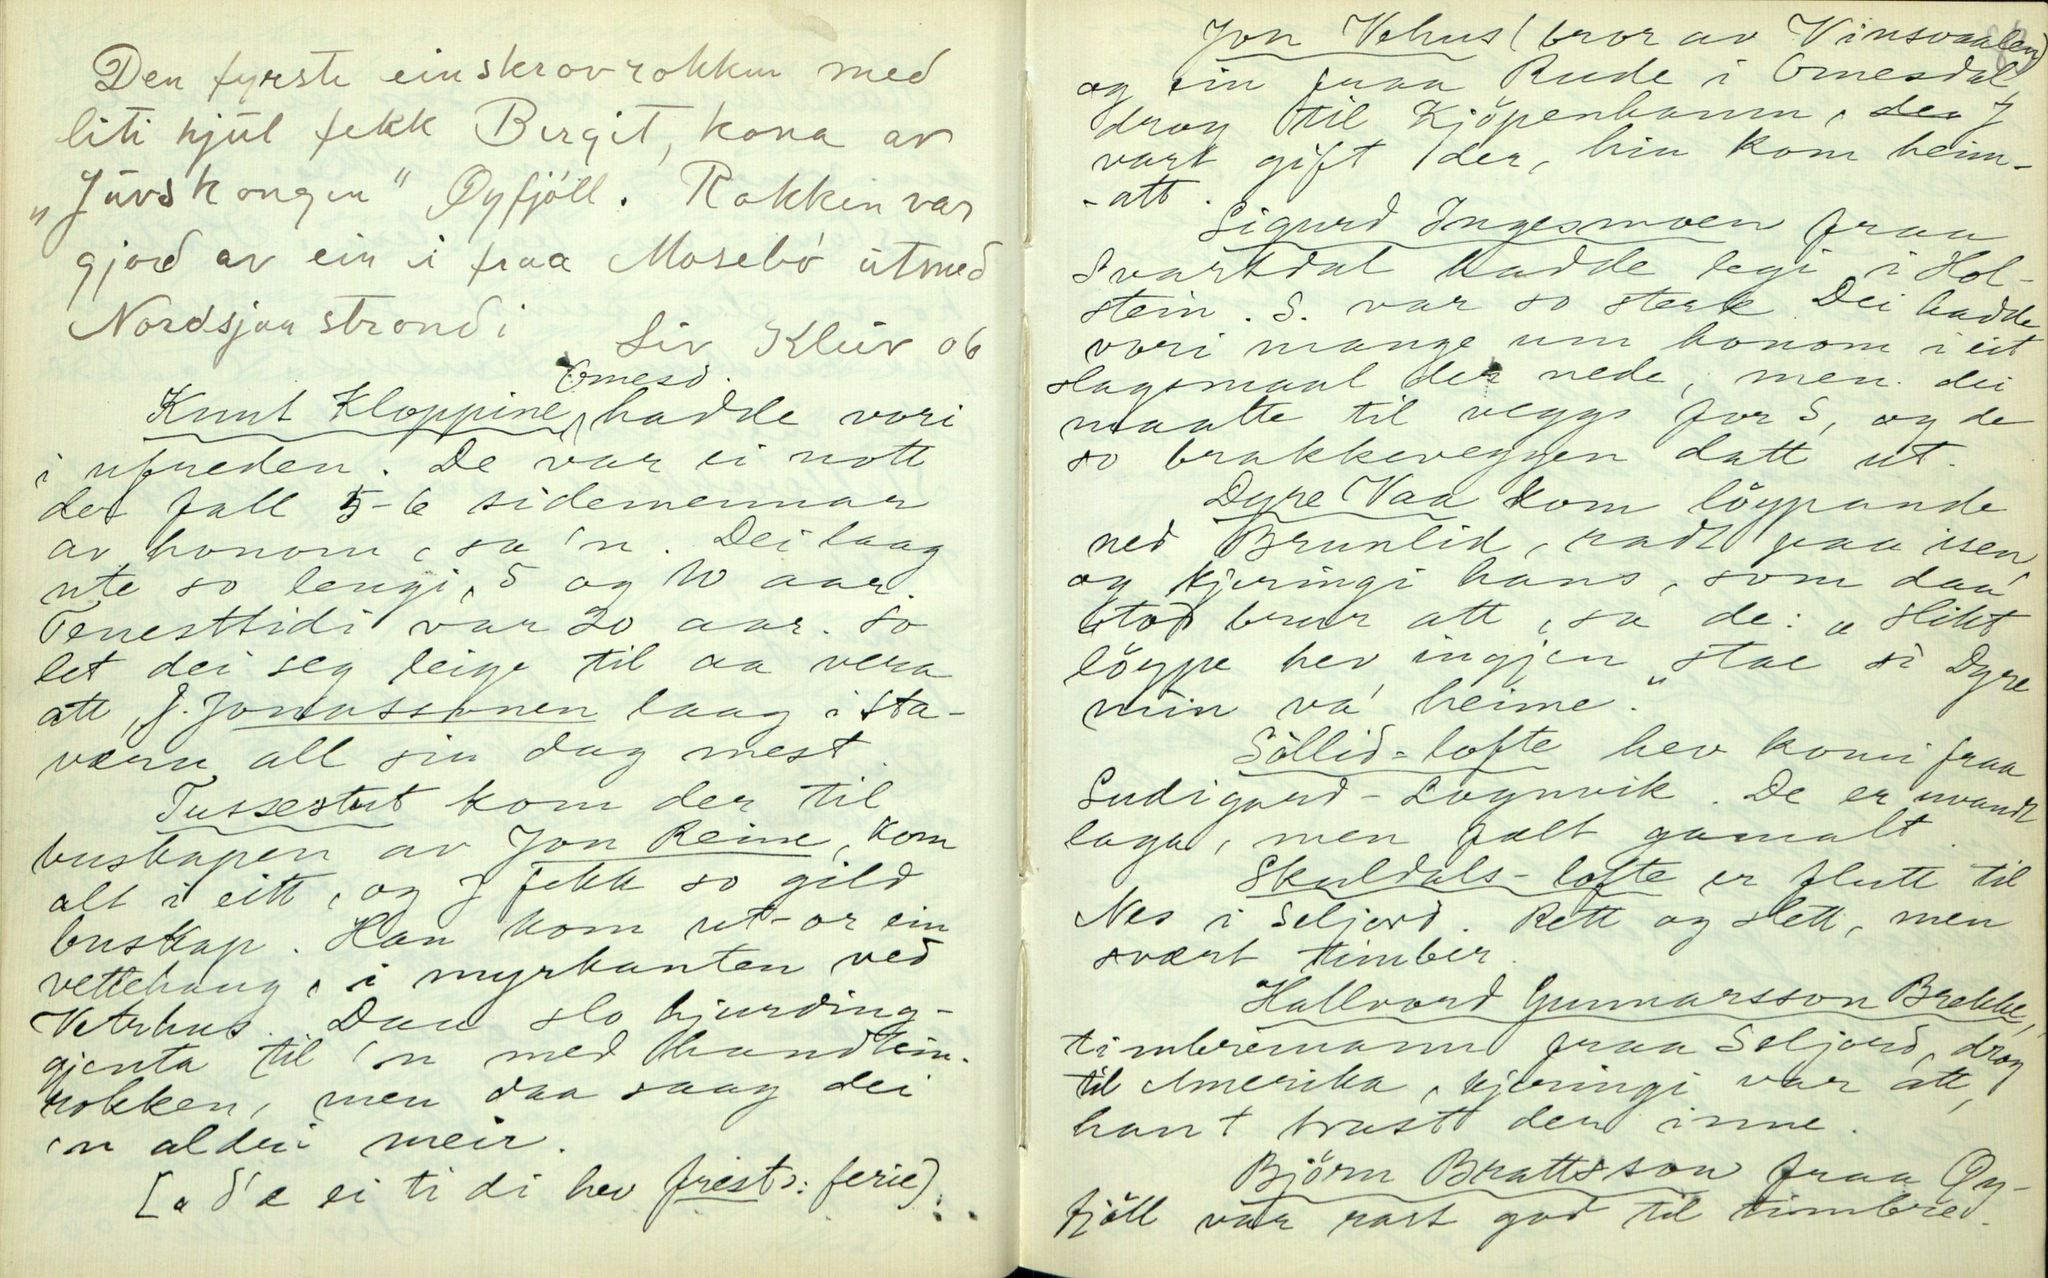 Den fyrste einskrovrokken med
liti hjul fekk Birgit, kona av
"Juvskongen" Øyfjöll. Rokkin var
gjord av ein i fraa Mosebö utmed
Nordsjaastrondi
Liv Kliuv 06
Omesd.
Knut Kloppine, hadde vori
i ufreden. De var ei nott
der fall 5-6 sidemennar
av honom, sa 'n. Dei laag
ute so lengi, 5 og 10 aar.
Tenesttidi var 20 aar. So
let dei seg leige til aa vera
att, J. Jonassonen laag i Sta-
værn all sin dag mest
Tussestut kom der til
buskapen av Jon Reine, kom
alt i eitt, og J fekk so gild
buskap. Han kom ut-or ein
vettehaug, i myrkanten ved
Vetrhus. Daa slo hjurding-
gjenta til 'n med handtein-
rokken, men daa saag dei
'n aldri meir.
[„d'æ ei ti di hev frest: ferie]
Jon Vehus (bror av Vinsvaalen)
og ein fraa Rude i Omesdal,
drog til Kjöpenhamn, der J
vart gift der, hin kom heim-
-att.
Sigurd Ingesmoen fraa
Svartdal hadde legi i Hol-
stein. S. var so sterk. Dei hadde
vori mange um honom i eit
slagsmaal der nede, men dei
maatte til veggs for S, og de
so brakkeveggen datt ut.
Dyre Vaa kom löypande
ned Brunlid, radt paa isen
og kjeringi hans, som daa
stod brur att, sa de: „Slikt
löype hev ingjen stae si Dyre
min va' heime."
Söllid-lofte hev komi fraa
Sudigard-Lognvik. De er uvandt
laga, men fælt gamalt.
Skuldals-lofte er flutt til
Nes i Seljord. Rett og slett, men
svært timber.
Hallvord Gunnarsson Brekke,
timbremann fraa Seljord, drog
til Amerika, kjeringi var att,
han † trast der inne.
Björn Brattsson fraa Øy-
fjöll var rart god til timbre-